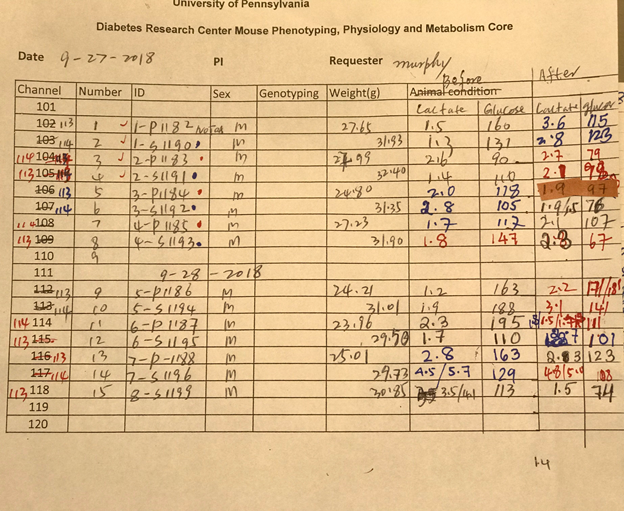 University of Pennsylvania
Diabetes Research Center Mouse Phenotyping, Physiology and Metabolism Core
Date 9-27-2018 PI Requester murphy
Before After
Channel Number ID Sex Genotyping Weight(g) Animal condition
Lactate Glucose Lactate glucose
101
102 113 1 1-P1182 m 27.65 1.5 160 3.6 115
103 114 2 1-S1190 m 31.93 1.3 131 2.8 123
104 114 3 2-P1183 m 2.6 90 2.7 79
105 113 4 2-S1191 m 32.40 1.4 110 2.1
106 113 5 3-P1184 m 24.80 2.0 178 1.9 97
107 114 6 3-S1192 m 31.35 2.8 105 1.9/1.5 76
108 114 7 4-P1185 m 27.23 1.7 117 2.1 107
109 113 8 4-S1193 m 31.90 1.8 147 2.8 67
110 9
111 9-28-2018
112 113 9 5-P1186 m 24.21 1.2 163 2.2
113 114 10 5-S1194 m 31.01 1.9 188 3.1 141
114 114 11 6-P1187 m 23.96 2.3 195
115 113 12 6-S1195 m 29.50 1.7 110 101
116 113 13 7-P-1188 m 25.01 2.8 163 2.83 123
117 114 14 7-S1196 m 29.73 4.5/5.7 129 4.8/5.0
118 113 15 8-S1199 m 30.85 3.5/4.1 113 1.5 74
119
120
14